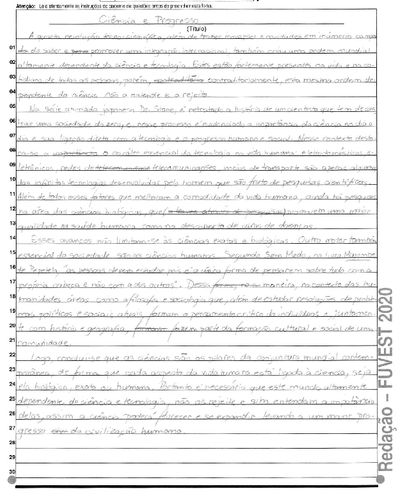 Ciência e Progresso
(Título)
01 A quarta revolução tecnocientífica, além de trazer inovações e novidades em inúmeros campos
02 do saber e promover uma integração internacional, também criou uma ordem mundial
03 altamente dependente da ciência e tecnologia. Esta está fortemente presente na vida e no co-
04 tidiano de todas as pessoas, porém, contraditoriamente, esta mesma ordem de-
05 pendente da ciência não a entende e a rejeita.
06 Na série animada japonesa Dr. Stone, é retratada a história de um cientista que tem de cons-
07 truir uma sociedade do zero e, nesse processo é evidenciada a importância da ciência no dia a
08 dia e sua ligação direta com a tecnologia e o progresso humano e social. Nesse contexto desta-
09 ca-se o caráter essencial da tecnologia na vida humana: eletrodomésticos e
10 eletrônicos, redes de telecomunicações, meios de transporte são apenas alguns
11 das infinitas tecnologias desenvolvidas pelo homem que são fruto de pesquisas científicas.
12 Além de todos esses fatores que melhoram a comodidade da vida humana, ainda há pesquisas
13 na área das ciências biológicas, que promovem uma maior
14 qualidade na saúde humana como na descoberta de curas de doenças.
15 Esses avanços não limitam-se às ciências exatas e biológicas. Outro motor também
16 essencial da sociedade são as ciências humanas. Segundo
17 "as pessoas devem estudar, pois é a única forma de pensarem sobre tudo com a
18 própria cabeça e não com a dos outros". Dessa maneira, no contexto das hu-
19 manidades áreas como a filosofia e sociologia que, além de estudar resoluções de proble-
20 mas políticos e sociais atuais, formam o pensamento crítico do indivíduo e juntamen-
21 te com história e geografia, fazem parte da formação cultural e social de uma
22 comunidade.
23 Logo, conclui-se que as ciências são os pilares da conjuntura mundial contem-
24 porânea, de forma que cada aspecto da vida humana está ligada à ciência, seja
25 ela biológica, exata ou humana. Portanto é necessário que este mundo, altamente
26 dependente de ciência e tecnologia, não as rejeite e saiba entender a importância
27 delas, assim a ciência poderá florescer e se expandir levando a um maior pro-
28 gresso da civilização humana.
29
30
Redação – FUVEST 2020